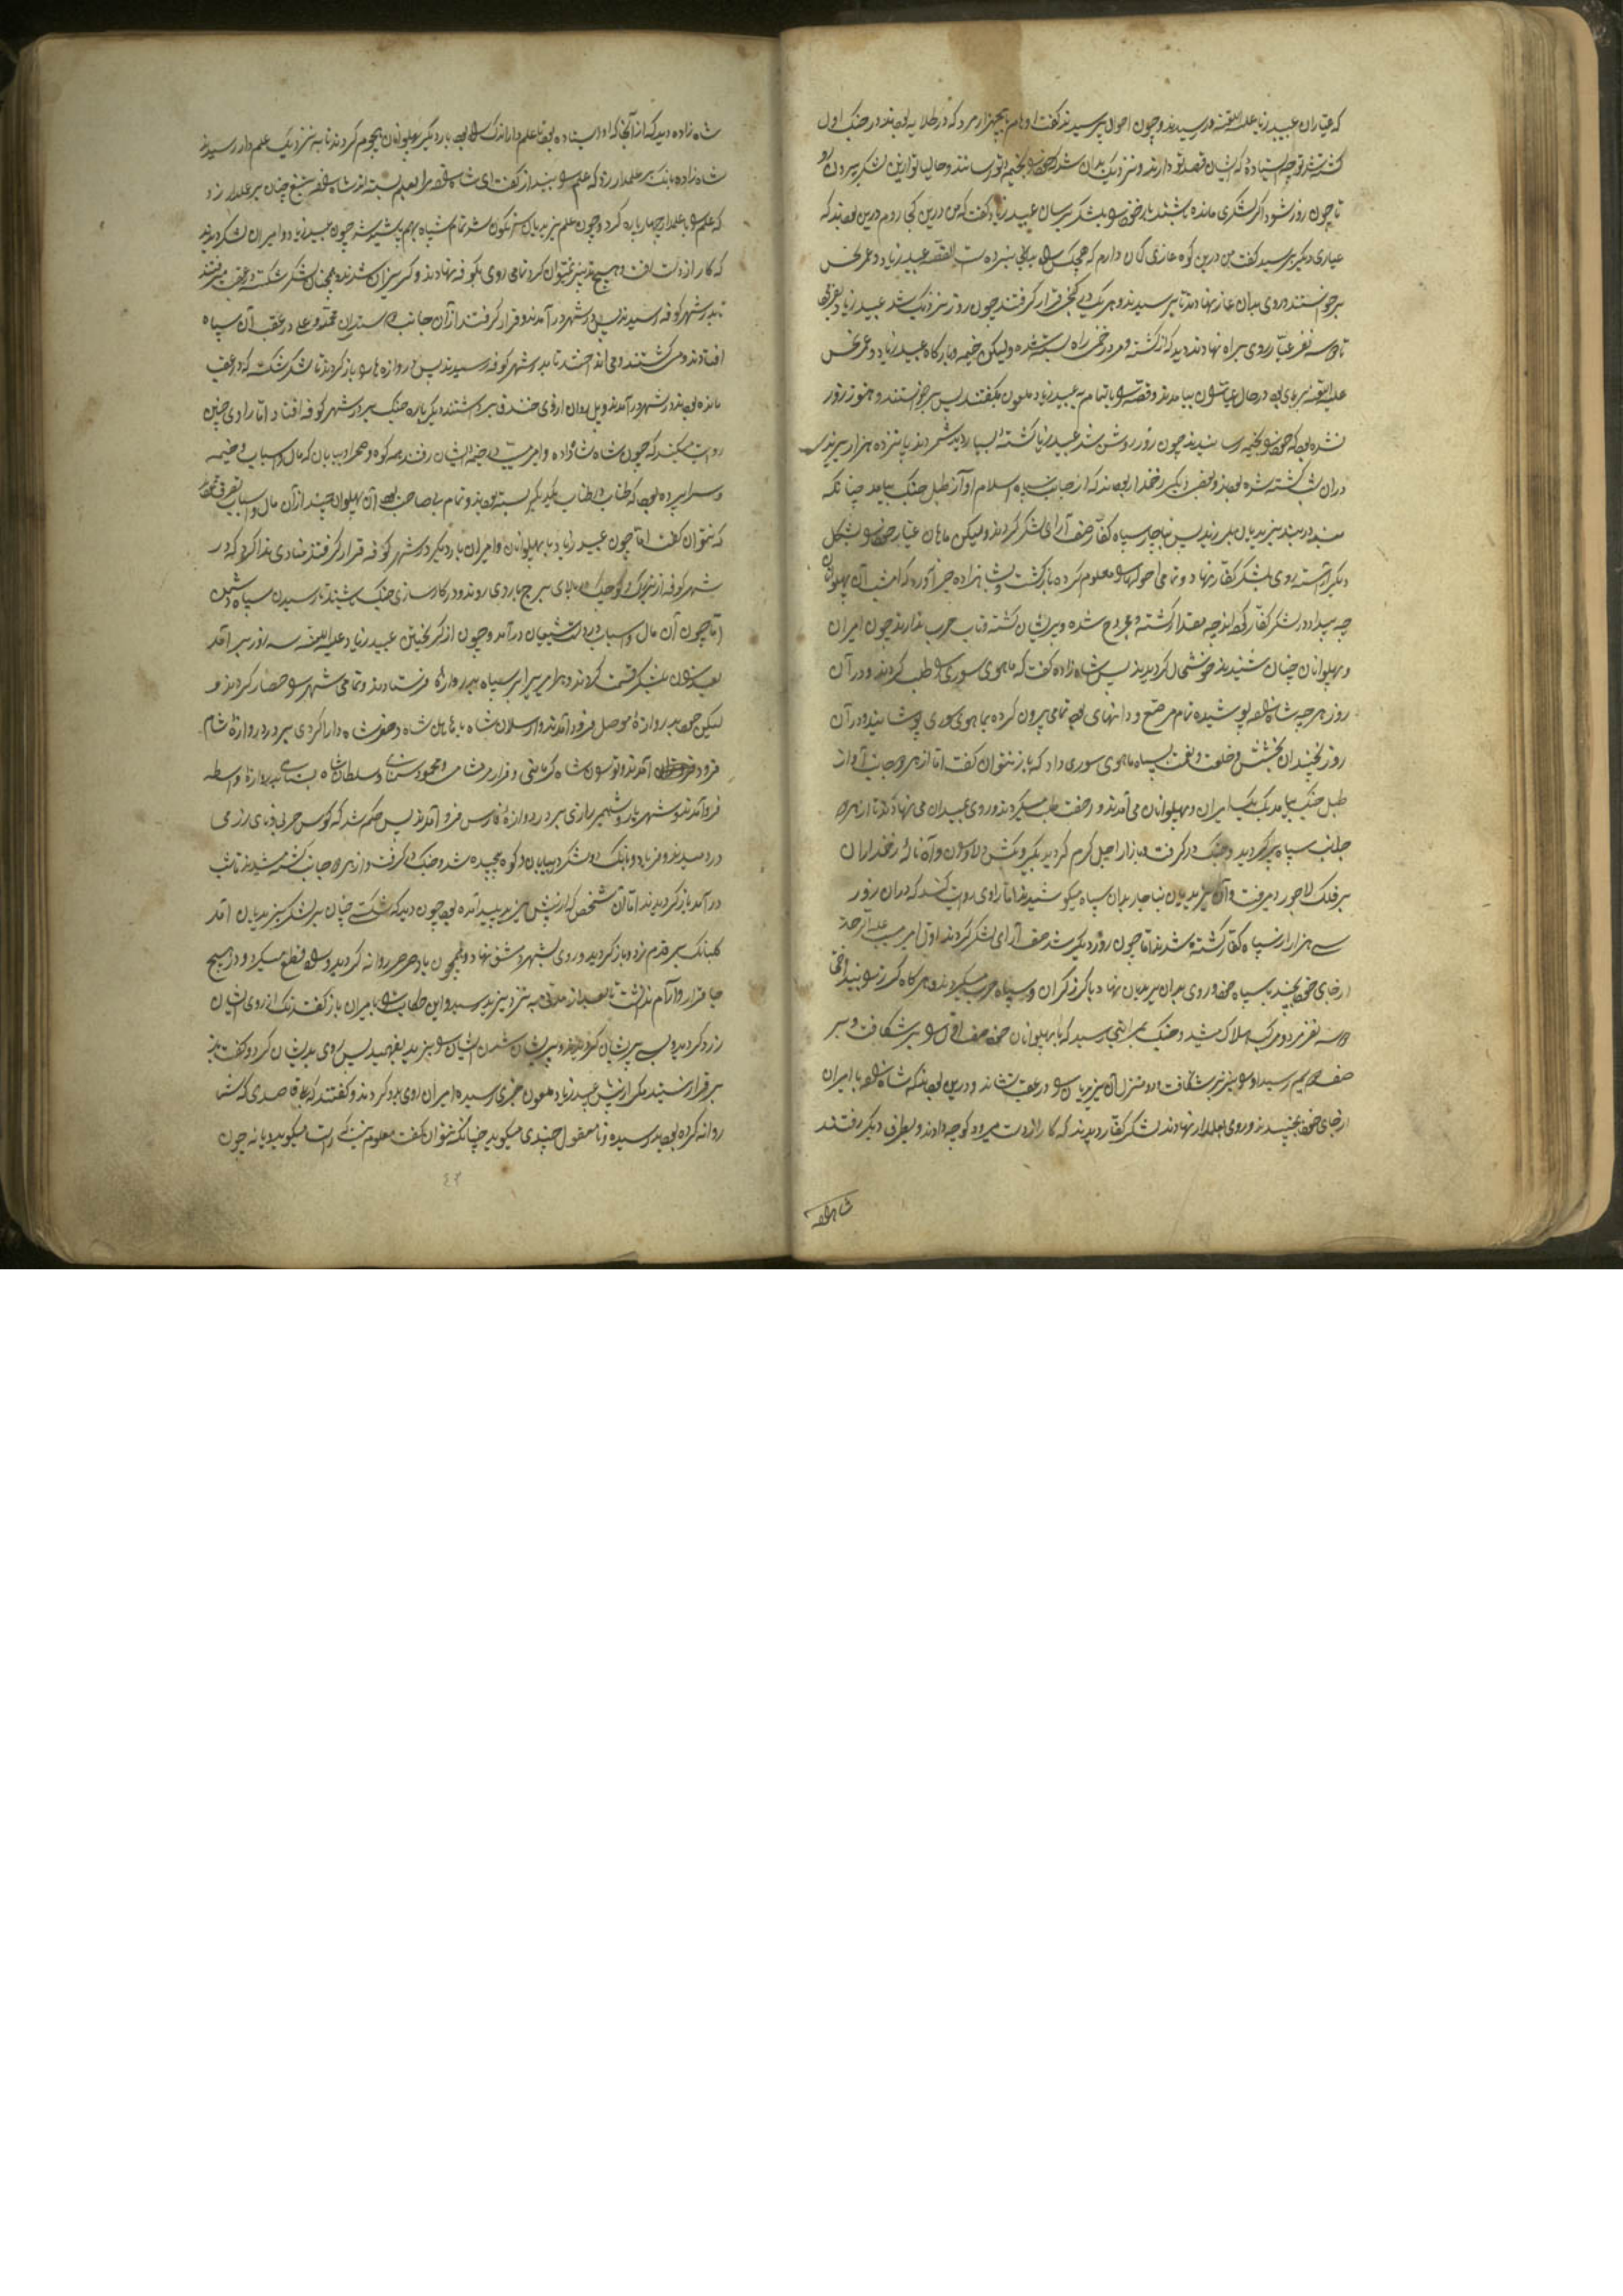 که عیاران عبید زیاد علیه اللعنه در رسیدند و چون احوال پرسیدند گفت او نام پنجهزار مرد که در طلایه بودند در جنک اول
کشته شد تو چه ایستادهٔ که ایشان قصد تو دارند و نزدیک بدان شد که خود را بخیمه تو رسانند و حالیا تو ازین لشکر بیرون رو
تا چون روز شود اکر لشکری مانده باشند باز خود را بلشکر برسان عبید زیاد گفت که من درین کجا روم درین بودند که
عیاری دیگر برسید گفت من درین کوه غاری کمان دارم که هیچکس را بدانجا نبرده است القصه عبید زیاد و عمر نحس
برخواستند و روی بدان غار نهادند تا برسیدند و هر یک در کنجی قرار گرفتند چون روز نزدیک شد عبید زیاد
تا دو سه نفر عیار روی براه نهادند دیدند که از کشته و مرد زخمی راه بسته شده ولیکن خیمه و بارکاه عبید زیاد و عمر نحس
علیه اللعنه بر پای بود در حال عیاران بیامدند و قصه را بتمام به عبید زیاد ملعون بگفتند پس برخواستند و هنوز روز
نشده بود که خود را بخیمه رسانیدند چون روز روشن شد عبید زیاد کشتهٔ بسیار دید شمردند پانزده هزار یزیدی
دران شب کشته شده بودند و بعضی دیگر زخمدار بودند که از جانب سپاه اسلام آواز طبل جنک بیامد چنانکه
یزیدیان بلرزیدند پس ناچار سپاه کفار صف آرای لشکر کردند ولیکن ماهان عیار خود را بشکل
دیگر آراسته روی بلشکر کفار نهاد و تمامی احوالها را معلوم کرده باز گشت و بشاهزاده خبر آورد که امشب آن پهلوانان
چه بیداد در لشکر کفار کرده اند چه مقدار کشته و مجروح شده و پریشان گشته و تاب حرب ندارند چون امیران
و پهلوانان چنان شنیدند خوشحال گردیدند پس شاهزاده گفت که ماهوی سوری را طلب کردند و در آن
روز هر چه شاهزاده پوشیده تمام مرصع و دانهای بود تمامی بیرون کرده بماهوی سوری پوشانید و در آن
روز چندان بخشش و خلعت و نعمت بسپاه ماهوی سوری داد که باز نتوان گفت اما از هر دو جانب آواز
طبل جنک بیامد یک یک امیران و پهلوانان می آمدند و رخصت طلب میکردند و روی بمیدان می نهادند تا از هر دو
جانب سپاه پر گردید و جنک در گرفت و بازار اجل گرم گردید بگیر و بکش دلاوران و آه نالهٔ زخمداران
بر فلک لاجورد میرفت و آن یزیدیان ناچار بدان سپاه میکوشیدند اما راوی روایت کند که دران روز
سی هزار از سپاه کفار کشته شدند اما چون روز دیگر شد صف آرای لشکر کردند اول امیر مسیب علیه الرحمه
از جای خود بجنبید با سپاه خود روی بدان یزیدیان نهاد با گرز گران و سپاه حرب میکردند و هر گاه گرز را بینداختی
دو سه نفر مرد و مرکب هلاک میشد و جنک بدانجا رسید که با پهلوانان خود صف اول را بر شکافت و بر
صف دویم رسید او را نیز بر شکافت و دو منزل آن یزیدیان را در عقب نشاند و درین بودند که شاهزاده با امیران
از جای خود بجنبیدند و روی بعلمدار نهادند لشکر کفار دیدند که کار از دست میرود کوچه دادند و بطرف دیگر رفتند
شاهزاده
شاهزاده دید که از آنجا که او ایستاده بود تا علم داران بود بار دیگر پهلوانان هجوم کردند تا به نزدیک علم دار رسیدند
شاهزاده بانک بر علمدار زد که علم را بینداز گفت ای شاهزاده مرا بعلم بسته اند شاهزاده تیغ چنان بر علمدار زد
که علم را با علمدار چهار پاره کرد و چون علم یزیدیان سرنگون شد تمام سپاه بهم بر شد چون عبید زیاد و امیران لشکر دیدند
که کار از دست رفت و هیچ تدبیر نمیتوان کرد تمامی روی بکوفه نهادند و گریزان شدند و همچنان لشکر شکسته در عقب میرفتند
تا بدر شهر کوفه رسیدند پس در شهر در آمدند و قرار گرفتند از آن جانب دوستداران محمد و علی در عقب آن سپاه
افتادند و می کشتند و می انداختند تا بدر شهر کوفه رسیدند پس دروازه ها را باز کردند تا لشکر شکسته که در عقب
مانده بودند در شهر در آمدند و پل روان از روی خندق برداشتند دیگر باره جنک بر در شهر کوفه افتاد اما راوی چنین
روایت میکند که چون شاه شاهزاده و امیر مسیب در خیمه ایشان رفتند همه کوه و صحرا و بیابان که مال و اسباب و خیمه
و سراپرده بود که طناب در طناب یکدیگر بسته بودند و تمام بی صاحب بود آن پهلوان چند از آن مال و اسباب بتصرف
که نتوان گفت اما چون عبید زیاد با پهلوانان و امیران بار دیگر در شهر کوفه قرار گرفتند منادی ندا کرد که در
شهر کوفه از بزرگ و کوچک بر بالای برج باروی روند و در کارسازی جنک باشند تا رسیدن سپاه دشمن
اما چون آن مال و اسباب در دست شیعیان در آمد و چون از گریختن عبید زیاد علیه اللعنه سه روز بر آمد
بعد از آن لشکر قسمت کردند و هر امیر را بر سپاه بهر دروازهٔ فرستادند و تمامی شهر را حصار کردند و
لیکن خود بدروازهٔ موصل فرود آمدند و ارسلان شاه با ماهان شاه و خضر شاه دارا کردی بر در دروازهٔ شام
فرود آمدند و توسون شاه کرمانی و محمود و سلطان شاه بدروازهٔ واسطه
فرو آمدند و شهریار و شهمیر رازی بر در دروازهٔ فارس فرو آمدند پس حکم شد که کوس حربی و نای رزمی
در دمیدند و فریاد و بانک در بیابان و کوه پیچیده شد و جنک در گرفت و از هر دو جانب کشته میشدند تا شب
در آمد باز گردیدند اما آن شخص که از پیش یزید پلید آمده بود چون دید که شکست چنان بر لشکر یزیدیان آمد
کلبانک بر قدم زد و باز گردید و روی بشهر دمشق نهاد و همچون باد صرصر روانه گردید و راه قطع میکرد و در هیچ
جا قرار و آرام نداشت تا بعد از مدتی به نزد یزید رسید و این حکایت را با امیران باز گفت رنگ از روی ایشان
زرد گردید و بسی پریشان گردیدند و پریشان شدن ایشان را یزید بفهمید پس روی بدیشان کرد و گفت
بر قرار نیستید مگر از پیش عبید زیاد ملعون خبری رسیده امیران روی بدو کردند و گفتند که قاصدی که شما
روانه کرده بودید رسیده و نامعقول چندی میگوید چنانکه نتوان گفت معلوم نیست که راست میگوید و یا نه چون
٤٣